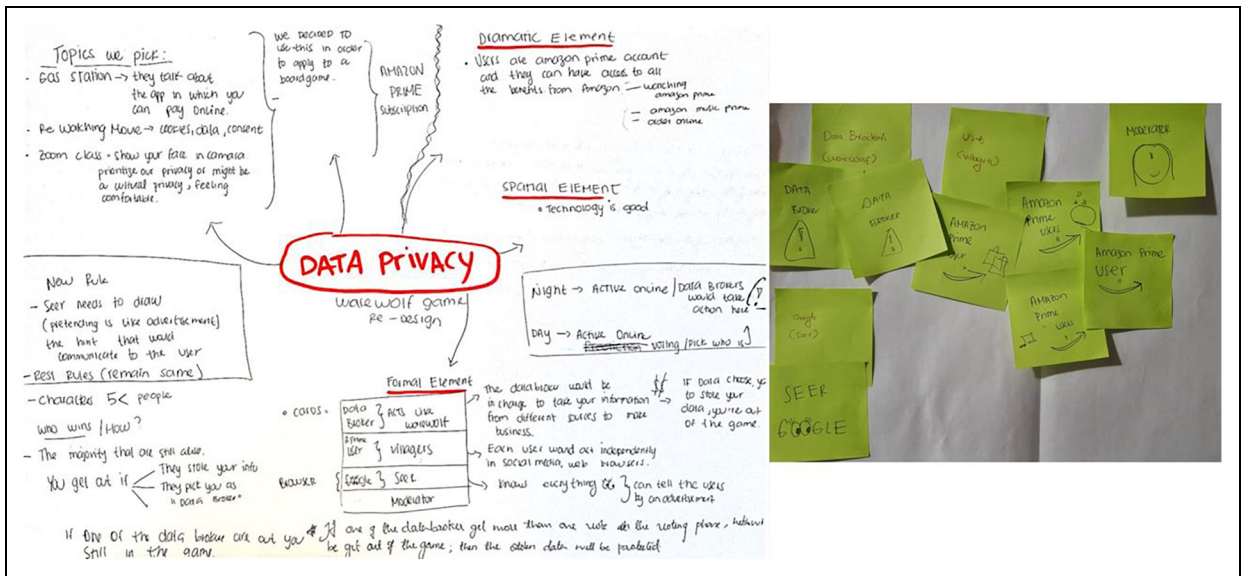 Topics we pick:
• Gas station → they talk about
the app in which you
can pay online.
• Re Watching Move → cookies, data, consent
• Zoom class • show your face in camara.
prioritize our privacy or might be
a cultural privacy, feeling
comfortable.
we DECIDED TO
use this in order
to apply to a
boardgame.
AMAZON
PRIME
Subscription
Dramatic Element
• Users are amazon prime account
and they can have access to all
the benefits from Amazon — watching
amazon prime
— amazon music prime
— order online
Spatial Element
• Technology is good
DATA PRIVACY
warewolf game
Re-Design
New Rule
- Seer needs to draw
(pretending is like advertisement)
the hint that would
communicate to the user
- Rest Rules (remain same)
- Characters 5< people
who wins / How?
- The majority that are still alive.
You get out if
They stole your info
They pick you as
"Data Broker"
Night → Active online / Data Brokers
would take
action here
DAY → Active Online
voting / pick who is
Formal Element
• CARDS •
Data
Broker } Acts like
warewolf
User } Villagers
BROWSER { Google } Seer
Moderator
The databroker would be
in charge to take your information
from different sources to make
business.
$$
→ If Data choose, yo
to store your
data, you're out
of the game.
Each user would act independently
in social media, web browsers.
knows everything } can tell the users
by an advertisement
If one of the data broker are out you
still in the game.
* If one of the databroker get more than one vote the voting phase,
be get out of the game; then the data will be protected
Data Brockers
(warewarf)
Users
(villagers)
MODERATOR
DATA
BROKER
DATA
BROKER
AMAZON
Prime
User
Amazon
Prime
users
Amazon Prime
User
AMAZON
Prime
users
Google
(Seer)
SEER
GOOGLE